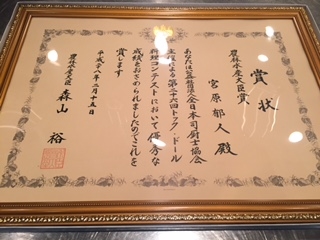 賞状
農林水産大臣賞
宮原郁人殿
あなたは公益社団法人全日本司厨士協会
主催による第二十六回トック・ドール
料理コンテストにおいて優秀な
成績をおさめられましたのでこれを
賞します
平成二十八年二月十五日
農林水産大臣 森山 裕